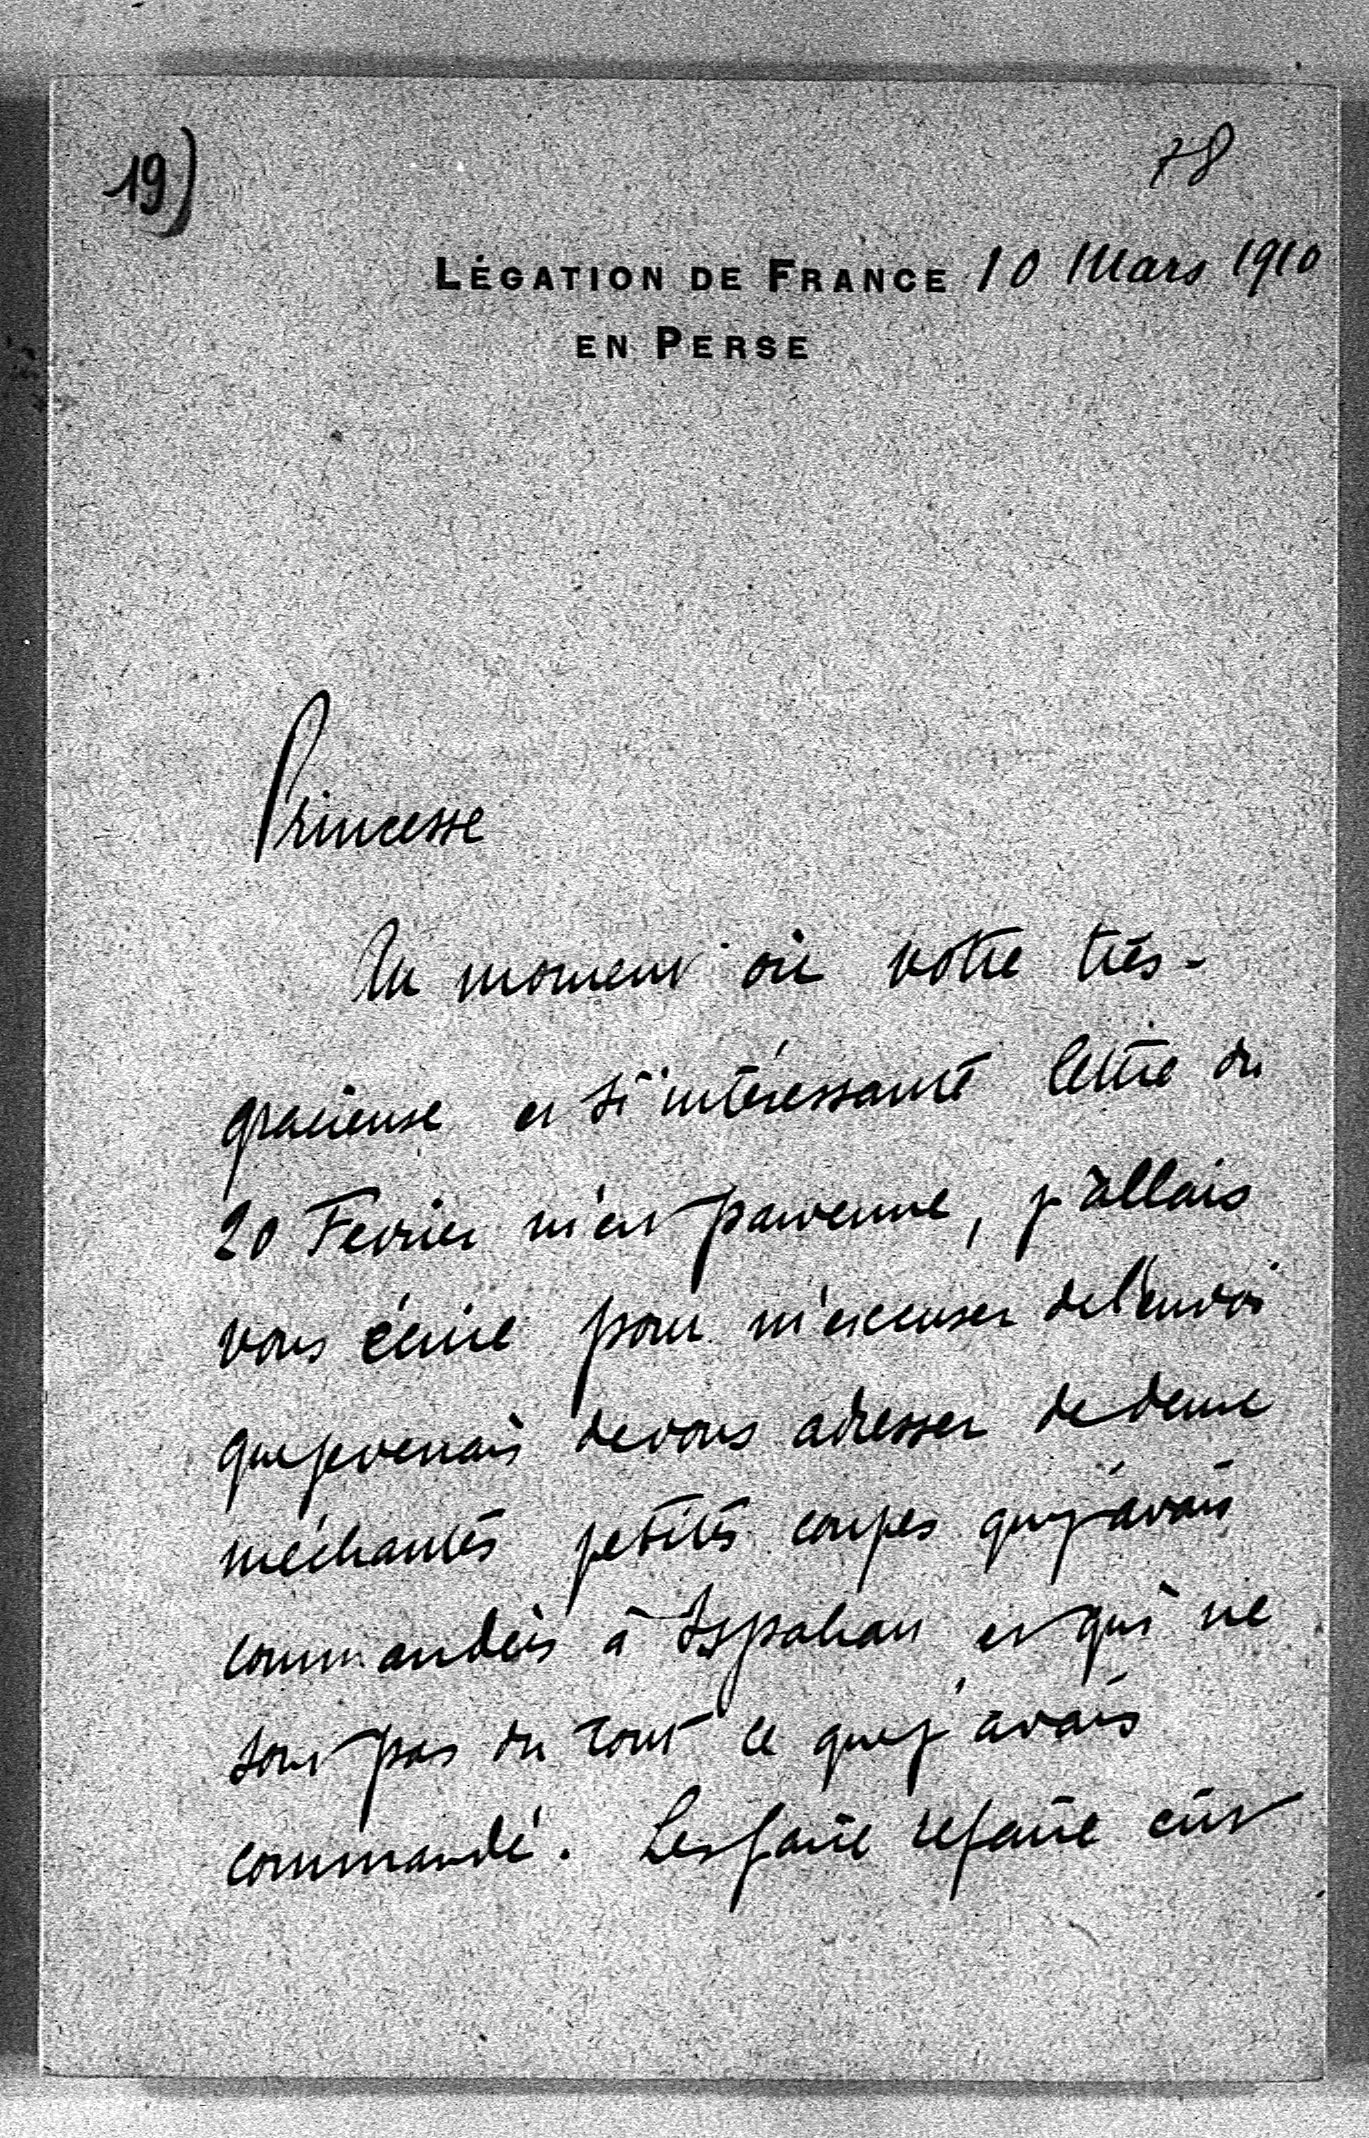 19)
78
LÉGATION DE FRANCE 10 Mars 1910
EN PERSE
Princesse
Au moment où votre très-
gracieuse et si intéressante lettre du
20 Fevrier m'est parvenue, j'allais
vous écrire pour m'excuser de l'envoi
que je venais de vous adresser de deux
méchantes petites coupes que j'avais
commandées à Ispahan et qui ne
sont pas du tout ce que j'avais
commandé. Les faire refaire eût